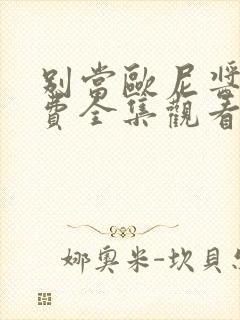 別當歐尼醬
費全集觀看
娜奧米-坎貝